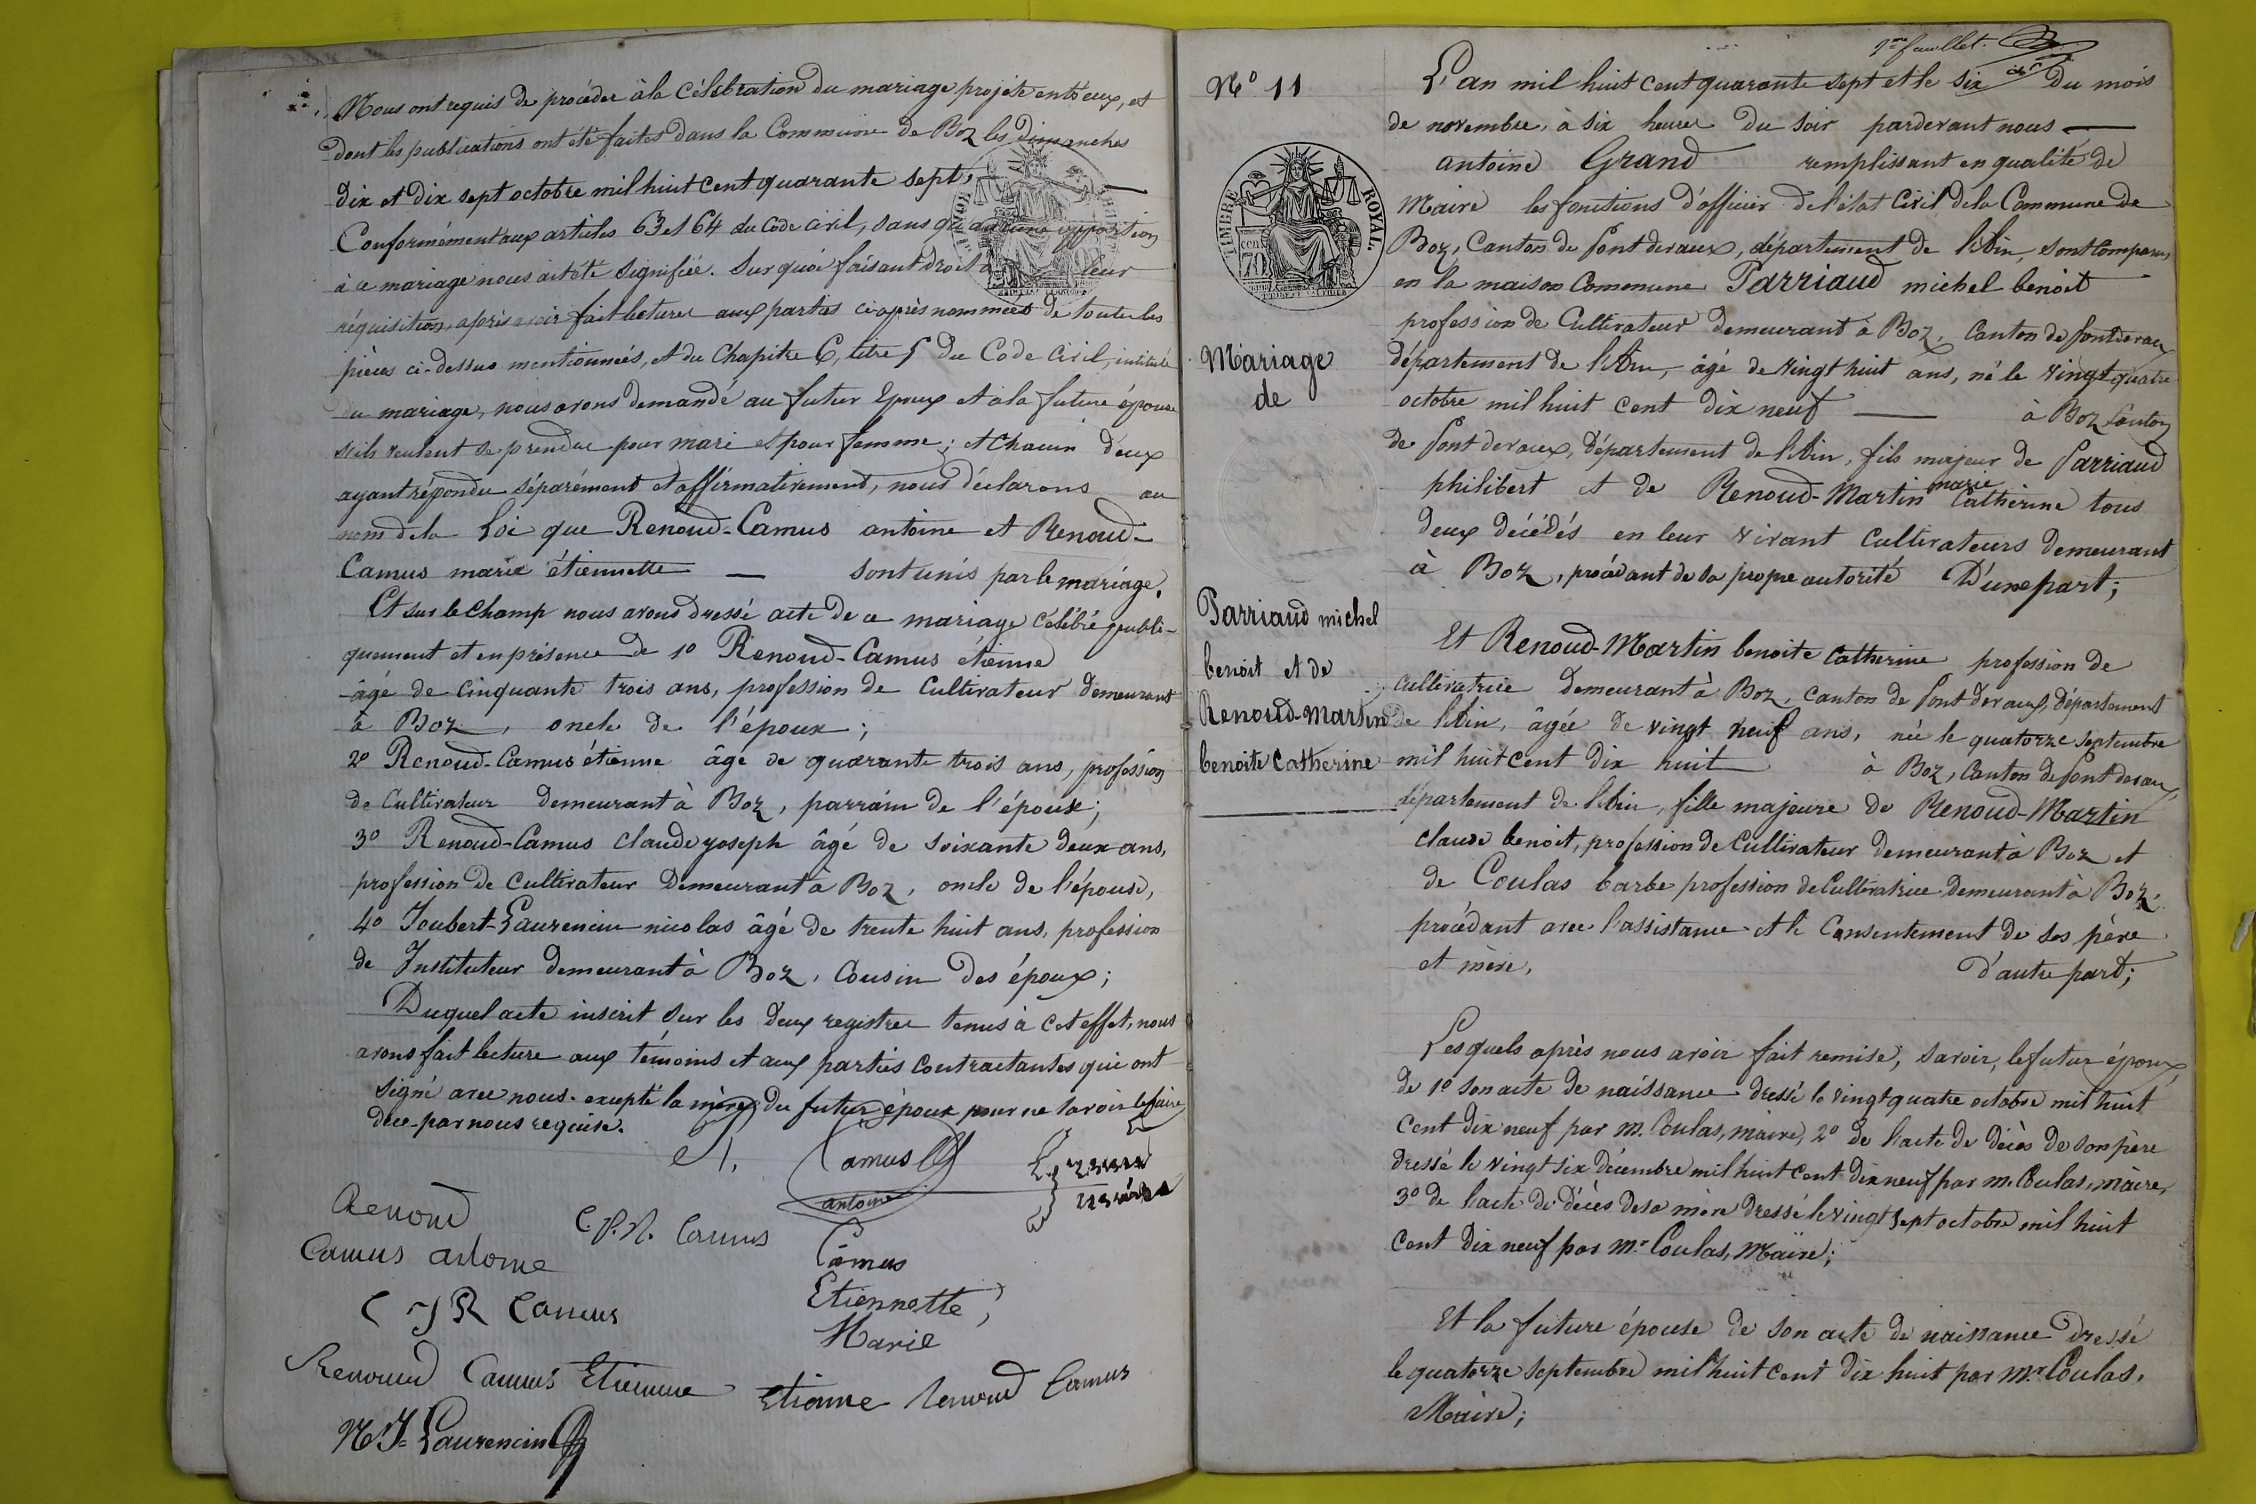 Nous ont requis de procéder à la célébration du mariage projeté entr'eux, et
dont les publications ont été faites dans la Commune de Boz les Dimanches
dix et dix sept octobre mil huit cent quarante sept,
Conformément aux articles 63 et 64 du Code civil, sans qu'aucune opposition
à ce mariage nous ait été signifiée. Sur quoi faisant droit à leur
réquisition, après avoir fait lecture aux parties ci-après nommées de toutes les
pièces ci-dessus mentionnées, et du Chapitre 6, titre 5 du Code Civil, intitulé
du mariage, nous avons demandé au futur Epoux et à la future épouse
s'ils veulent se prendre pour mari et pour femme; et chacun d'eux
ayant répondu séparément et affirmativement, nous déclarons au
nom de la Loi que Renoud-Camus antoine et Renoud-
Camus marie étiennette sont unis par le mariage.
Et sur le champ nous avons dressé acte de ce mariage célébré publi-
quement et en présence de 1º Renoud-Camus étienne
âgé de cinquante trois ans, profession de Cultivateur demeurant
à Boz, oncle de l'époux;
2º Renoud-Camus étienne âgé de quarante trois ans, profession
de Cultivateur demeurant à Boz, parrain de l'époux;
3º Renoud-Camus claude joseph âgé de soixante deux ans,
profession de Cultivateur Demeurant à Boz, oncle de l'épouse,
4º Joubert-Laurencin nicolas âgé de trente huit ans, profession
de Instituteur demeurant à Boz, Cousin des époux;
Duquel acte inscrit sur les deux registres tenus à cet effet, nous
avons fait lecture aux témoins et aux parties Contractantes qui ont
signé avec nous. excepté la mère du futur époux pour ne savoir le faire
de ce par nous requise.
Camus
antoine
Renoud
C.P.R. Camus
Camus antoine
Camus
Etiennette
Marie
C J R Camus
Renoud Camus Etienne
Etienne Renoud Camus
N J= Laurencin
2me feuillet.
Nº 11
TIMBRE ROYAL.
cen 70
Mariage
de
Parriaud michel
benoit et de
Renoud-Martin
benoite Catherine
L'an mil huit cent quarante sept et le six du mois
de novembre, à six heures du soir pardevant nous
antoine Grand remplissant en qualité de
Maire les fonctions d'officier de l'état Civil de la Commune de
Boz, Canton de Pont devaux, département de l'Ain, sont comparus
en la maison Commune Parriaud michel benoit
profession de Cultivateur demeurant à Boz, Canton de Pont devaux
département de l'Ain, âgé de vingt huit ans, né le vingt quatre
octobre mil huit cent dix neuf à Boz Canton
de Pont devaux, Département de l'Ain, fils majeur de Parriaud
philibert et de Renoud-Martin marie Catherine tous
deux décédés en leur vivant Cultivateurs demeurant
à Boz, procédant de sa propre autorité D'une part;
Et Renoud-Martin benoite Catherine profession de
Cultivatrice Demeurant à Boz, Canton de Pont devaux, Département
de l'Ain, âgée de vingt neuf ans, née le quatorze septembre
mil huit cent dix huit à Boz, Canton de Pont devaux,
département de l'Ain, fille majeure de Renoud-Martin
claude benoit, profession de Cultivateur demeurant à Boz et
de Coulas barbe profession de Cultivatrice Demeurant à Boz.
procédant avec l'assistance et le Consentement de ses père
et mère, D'autre part;
Lesquels après nous avoir fait remise, savoir, le futur époux,
de 1º son acte de naissance dressé le vingt quatre octobre mil huit
cent dix neuf par m. Coulas, maire, 2º de l'acte de décès de son père
dressé le vingt six décembre mil huit cent dix neuf par m. Coulas, maire,
3º de l'acte de décès de sa mère dressé le vingt sept octobre mil huit
cent dix neuf par Mr. Coulas, Maire;
Et la future épouse de son acte de naissance Dressé
le quatorze septembre mil huit cent dix huit par Mr. Coulas,
Maire;